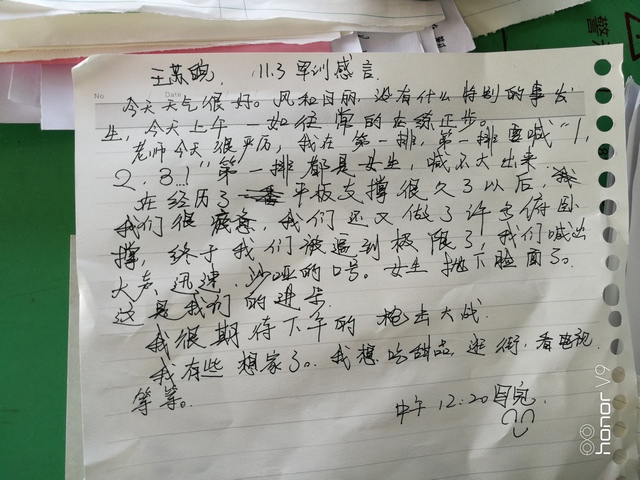 王苏 11.3 军训感言.
No Date
今天天气很好。风和日丽,没有什么特别的事发
生,今天上午一如往常的在练正步。
老师今天很严厉,我在第一排,第一排要喊“1,
2,3!”第一排都是女生,喊不大出来
在经历了平板支撑很久了以后,我
我们很疲惫,我们还又做了许多俯卧
撑,终于我们被逼到极限了,我们喊出
大声、迅速、沙哑的口号。女生抛下脸面了。
这是我们的进步
我很期待下午的枪击大战.
我有些想家了。我想吃甜品,逛街,看电视
等等。
中午 12:20
honor V9